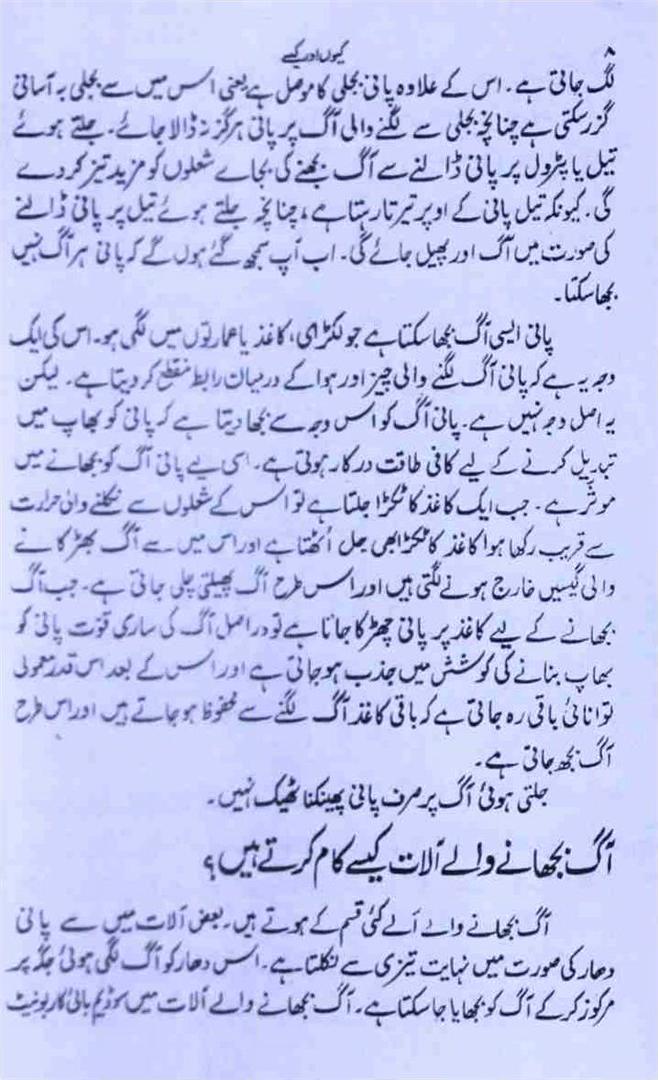 ۸
کیوں اور کیسے
لگ جاتی ہے۔ اس کے علاوہ پانی بجلی کا موصل ہے یعنی اس میں سے بجلی بہ آسانی
گزر سکتی ہے چنانچہ بجلی سے لگنے والی آگ پر پانی ہرگز نہ ڈالا جائے۔ جلتے ہوئے
تیل یا پٹرول پر پانی ڈالنے سے آگ بجھنے کی بجائے شعلوں کو مزید تیز کر دے
گی۔ کیونکہ تیل پانی کے اوپر تیرتا رہتا ہے، چنانچہ جلتے ہوئے تیل پر پانی ڈالنے
کی صورت میں آگ اور پھیل جائے گی۔ اب آپ سمجھ گئے ہوں گے کہ پانی ہر آگ نہیں
بجھا سکتا۔
پانی ایسی آگ بجھا سکتا ہے جو لکڑی، کاغذ یا عمارتوں میں لگی ہو۔ اس کی ایک
وجہ یہ ہے کہ پانی آگ لگنے والی چیز اور ہوا کے درمیان رابطہ منقطع کر دیتا ہے۔ لیکن
یہ اصل وجہ نہیں ہے۔ پانی آگ کو اس وجہ سے بجھا دیتا ہے کہ پانی کو بھاپ میں
تبدیل کرنے کے لیے کافی طاقت درکار ہوتی ہے۔ اسی لیے پانی آگ کو بجھانے میں
موثر ہے۔ جب ایک کاغذ کا ٹکڑا جلتا ہے تو اس کے شعلوں سے نکلنے والی حرارت
سے قریب رکھا ہوا کاغذ کا ٹکڑا بھی جل اُٹھتا ہے اور اس میں سے آگ بھڑکانے
والی گیسیں خارج ہونے لگتی ہیں اور اس طرح آگ پھیلتی چلی جاتی ہے۔ جب آگ
بجھانے کے لیے کاغذ پر پانی چھڑکا جاتا ہے تو دراصل آگ کی ساری قوت پانی کو
بھاپ بنانے کی کوشش میں جذب ہو جاتی ہے اور اس کے بعد اس قدر معمولی
توانائی باقی رہ جاتی ہے کہ باقی کاغذ آگ لگنے سے محفوظ ہو جاتے ہیں اور اس طرح
آگ بجھ جاتی ہے۔
جلتی ہوئی آگ پر صرف پانی پھینکنا ٹھیک نہیں۔
آگ بجھانے والے آلات کیسے کام کرتے ہیں؟
آگ بجھانے والے آلے کئی قسم کے ہوتے ہیں۔ بعض آلات میں سے پانی
دھار کی صورت میں نہایت تیزی سے نکلتا ہے۔ اس دھار کو آگ لگی ہوئی جگہ پر
مرکوز کر کے آگ کو بجھایا جا سکتا ہے۔ آگ بجھانے والے آلات میں سوڈیم بائی کاربونیٹ